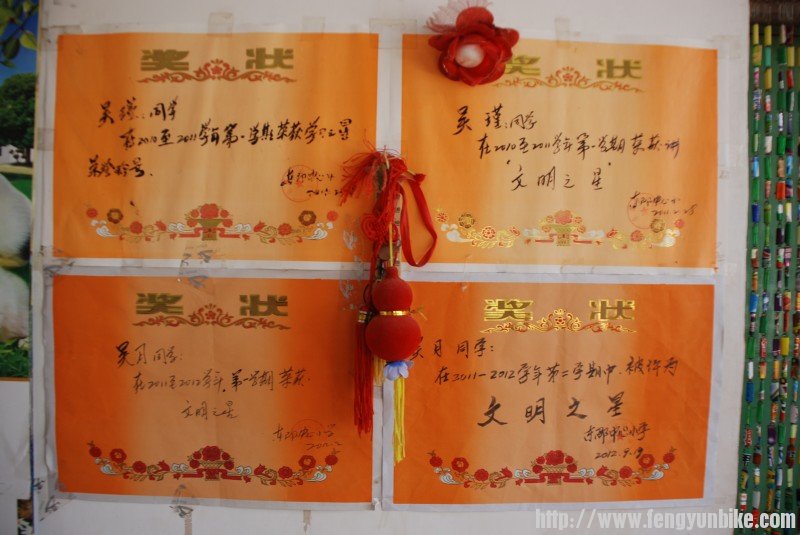 奖状
吴瑾:同学
在2010至2011学年第一学期荣获学习之星
荣誉称号.
奖状
吴瑾:同学
在2010至2011学年第一学期荣获讲
"文明之星"
2011.2.25
奖状
吴月同学:
在2011至2012学年,第一学期荣获
文明之星
2012.2
奖状
吴月同学:
在2011-2012学年第二学期中,被评为
文明之星
2012.9.19
http://www.fengyunbike.com/